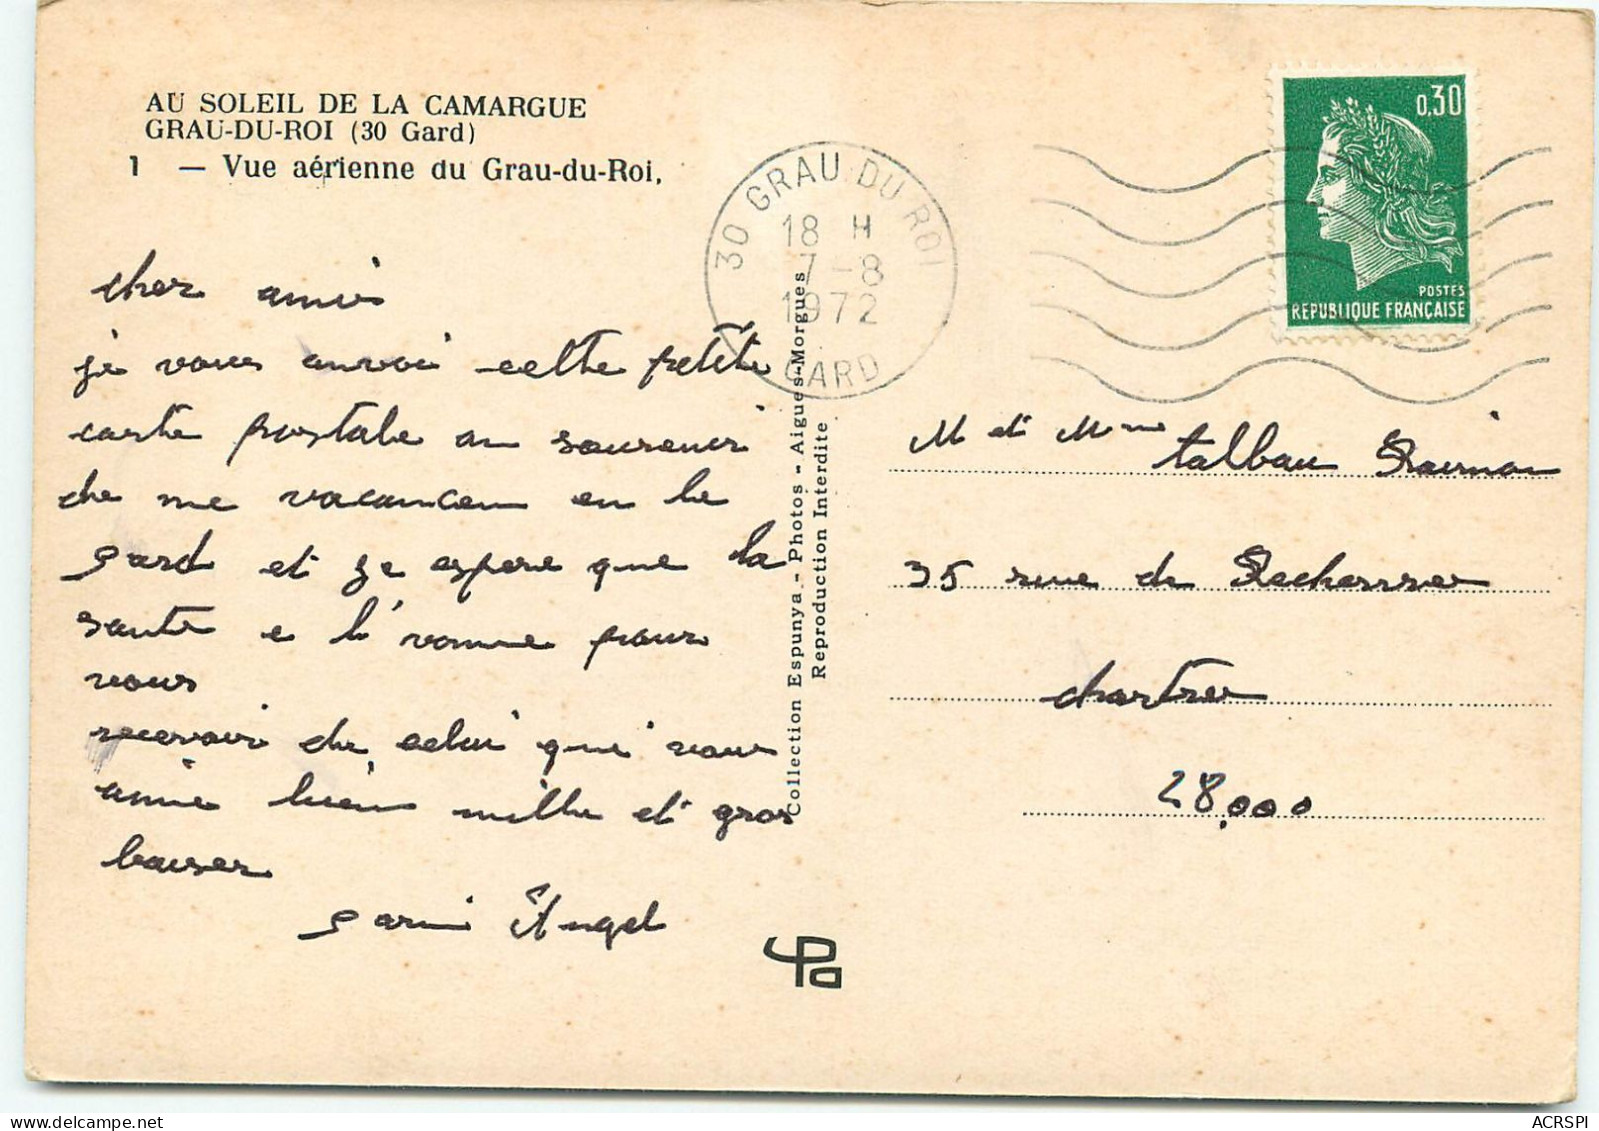 AU SOLEIL DE LA CAMARGUE
GRAU-DU-ROI (30 Gard)
1 — Vue aérienne du Grau-du-Roi.
cher amis
je vous anvoi cette petite
carte postale an souvenir
de me vacancen en le
gard et je espere que la
sante e l'vonne pour
vous
recevoir de celui que vous
amie bien mille et gros
baiser
Angel
Collection Espunya - Photos - Aigues-Morgues
Reproduction Interdite
30 GRAU DU ROI
18 H
7-8
1972
GARD
0,30
POSTES
REPUBLIQUE FRANÇAISE
M et Mme talbau
35 rue de
chartres
28.000
delcampe.net
ACRSPI